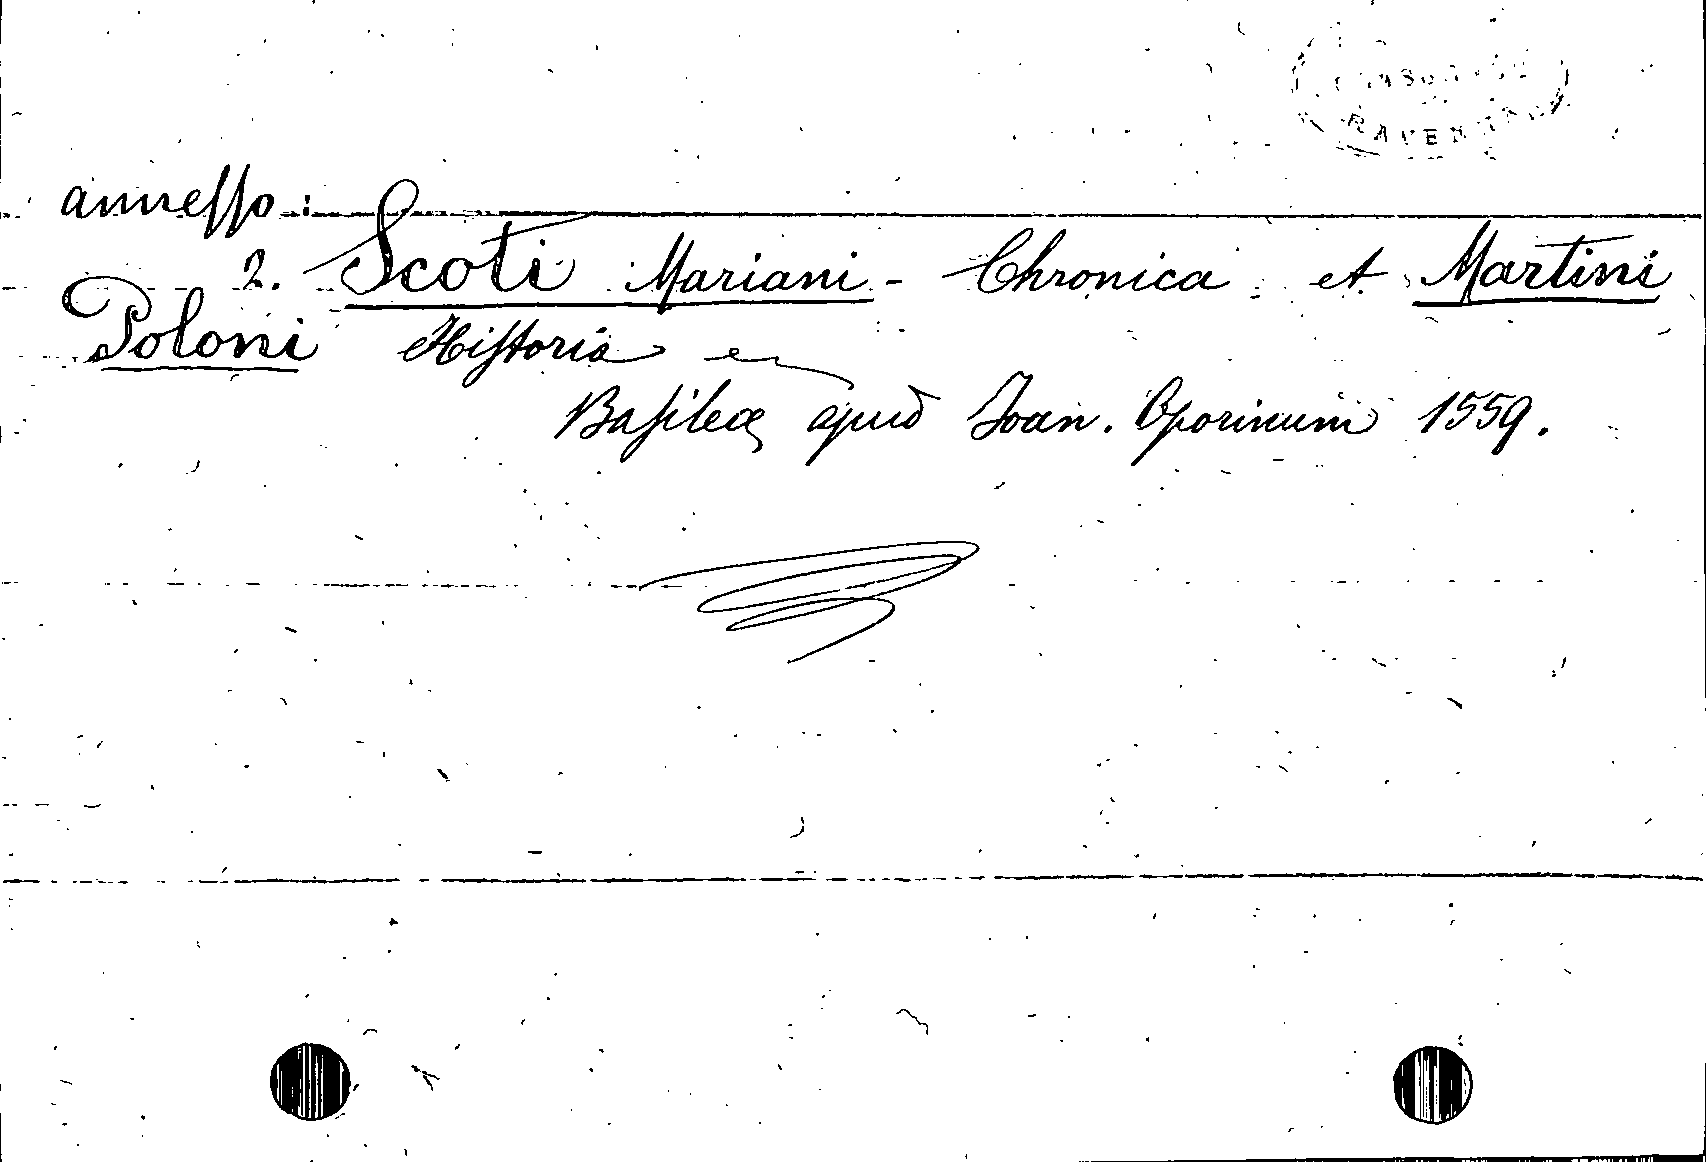 RAVENNA
annesso:
2. Scoti Mariani - Chronica et Martini
Poloni Historia
Basileæ apud Joan. Oporinum 1559.